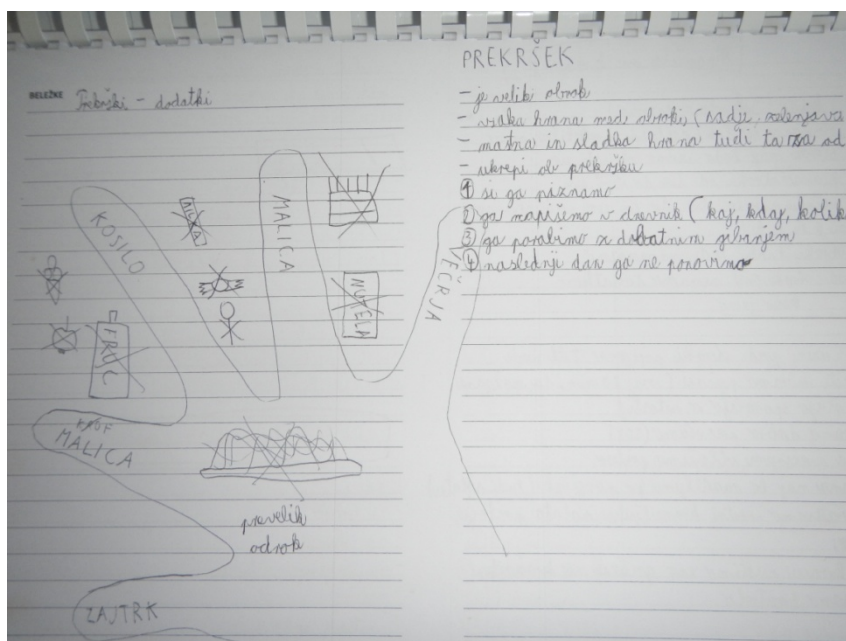 BELEŽKE Prekrški - dodatki
KOSILO
MALICA
MILKA
NUTELA
FRUC
KROF
MALICA
prevelik
odrok
ZAJTRK
VEČERJA
PREKRŠEK
- je velik obrok
- vsaka hrana med obroki, (sadje, zelenjava
- mastna in sladka hrana tudi ta za od
- ukrepi ob prekršku
① si ga piznamo
② ga napišemo v dnevnik (kaj, kdaj, kolik
③ ga porabimo z dodatnim gibanjem
④ naslednji dan ga ne ponovimo